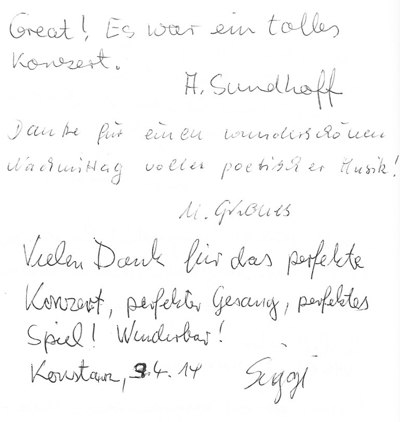 Great! Es war ein tolles
Konzert.
A. Sundhoff
Danke für einen wunderschönen
Nachmittag voller poetischer Musik!
M.
Vielen Dank für das perfekte
Konzert, perfekter Gesang, perfektes
Spiel! Wunderbar!
Konstanz, 9.4.14 Siggi